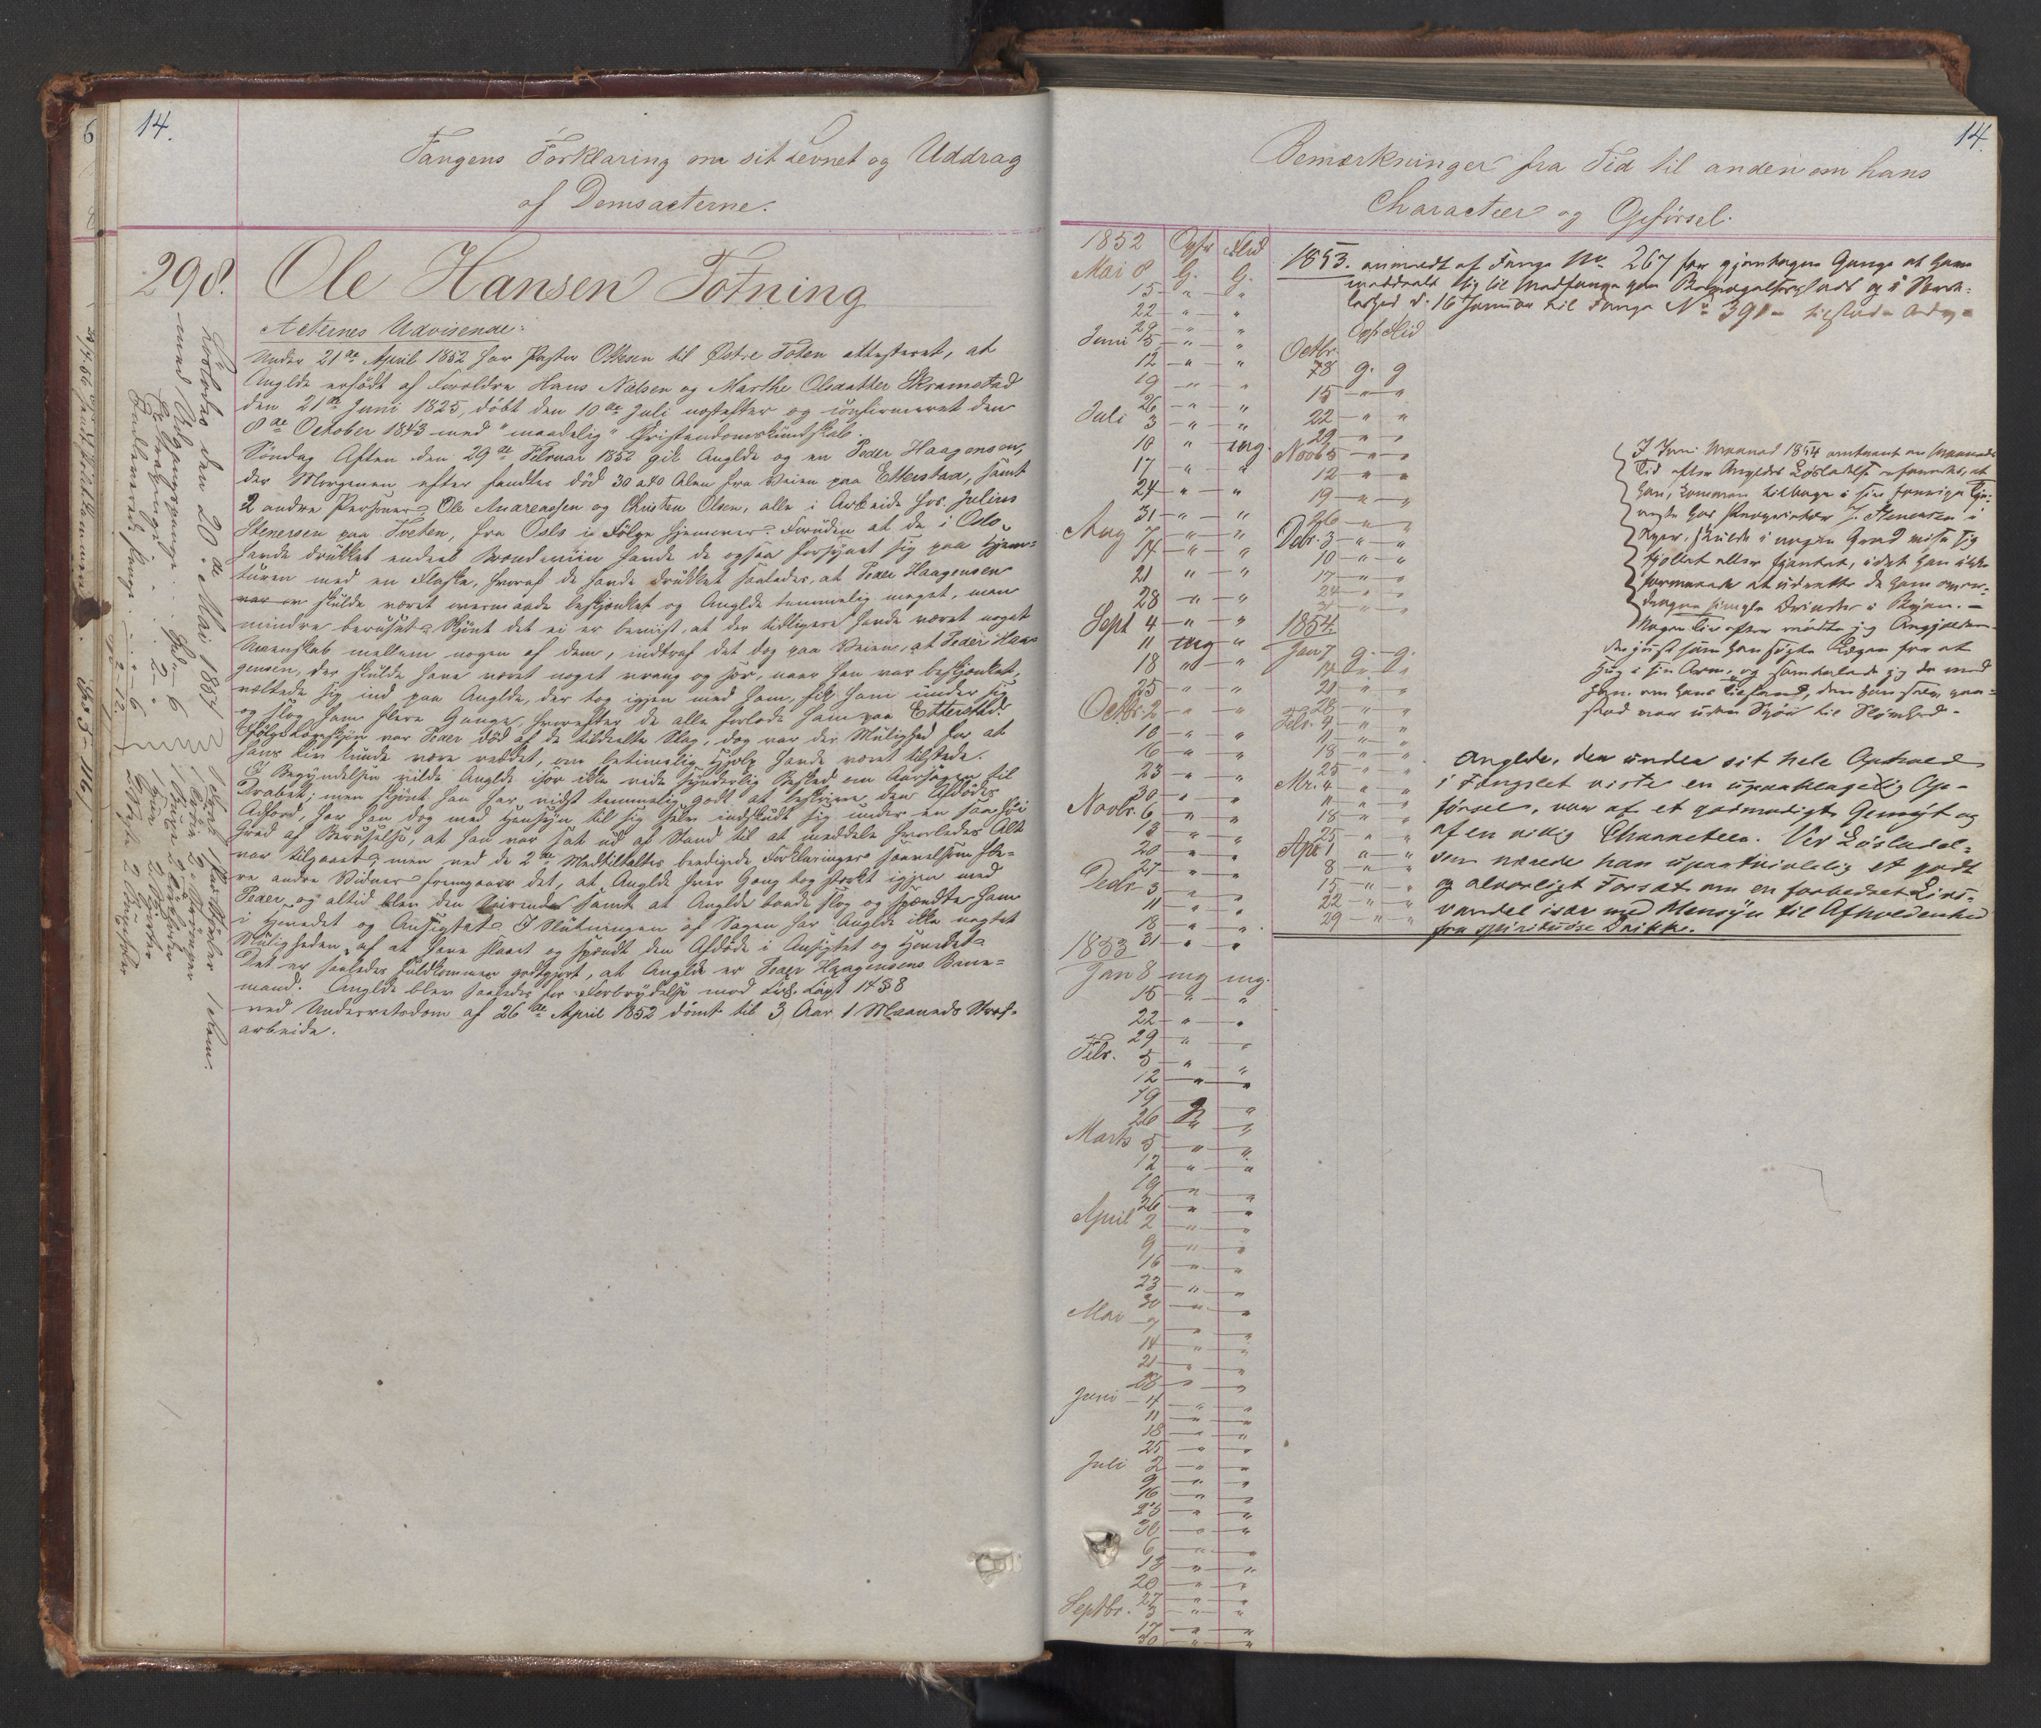 14.
Fangens Forklaring om sit Levnet og Uddrag
af Domsacterne.
298. Ole Hansen Totning
Acternes Udvisende:
Under 21de April 1852 har Pastor Ottesen til Østre Toten attesteret, at
Anglde er født af Forældre Hans Nielsen og Marthe Olsdatter Skramstad
den 21de Juni 1825, døbt den 10de Juli næstefter og confirmeret den
8de October 1843 med "maadelig" Christendomskundskab.
Søndag Aften den 29de Februar 1852 gik Anglde og en Peder Haagensen,
der Morgenen efter fandtes død 30 a 40 Alen fra Veien paa Etterstad, samt
2 andre Personer, Ole Andreassen og Christen Olsen, alle i Arbeide hos Julius
Stenersen paa Tveten, fra Oslo i Følge hjemover. Foruden at de i Oslo
havde drukket endeel Brændeviin havde de ogsaa forsynet sig paa Hjem-
turen med en Flaske, hvoraf de havde drukket saaledes, at Peder Haagensen
skulde været overmaade beskjænket og Anglde temmelig meget, men
mindre beruset. Skjønt det ei er beviist, at der tidligere havde været noget
Uvenskab mellem nogen af dem, indtraf det dog paa Veien, at Peder Haa-
gensen, der skulde have været noget vrang og sær, naar han var beskjænket,
væltede sig ind paa Anglde, der tog igjen med ham, fik ham under sig
og slog ham flere Gange, hvorefter de alle forlode ham paa Etterstad.
Ifølge Lægeskjøn var Peder død af de tildeelte Slag, dog var der Mulighed for at
hans Liv kunde være reddet, om betimelig Hjælp havde været tilstede.
I Begyndelsen vilde Anglde ikke vide synderlig Besked om Aarsagen til
Drabet; men skjønt han har vidst temmelig godt at beskrive den Afdødes
Adfærd, har han dog med Hensyn til sig selv indskudt sig under en saadan
Grad af Beruselse, at han var sat ud af Stand til at meddele hvorledes Alt
var tilgaaet; men ved de 2de Medtiltaltes beedigede Forklaringer saavelsom fle-
re andre Vidner fremgaaer det, at Anglde hver Gang tog stærkt igjen med
Peder og altid blev den Seirende samt at Anglde baade slog og spændte ham
i Hovedet og Ansigtet. I Slutningen af Sagen har Anglde ikke nægtet
Muligheden af at have slaaet og spændt den Afdøde i Ansigtet og Hovedet.
Det er saaledes fuldkommen godtgjort, at Anglde er Peder Haagensens Bane-
mand. Anglde blev saaledes for Forbrydelse mod Lov. Cap. 14 § 8
ved Underretsdom af 26de April 1852 dømt til 3 Aar 1 Maaneds Straf-
arbeide.
Løslades den 20de Mai 1854
14.
Bemærkninger fra Tid til anden om hans
Characteer og Opførsel.
1852 Opfør Flid
Mai 8 G. G.
15 " "
22 " "
29 " "
Juni 5 " "
12 " "
19 " "
26 " "
Juli 3 " "
10 " mg.
17 " "
24 " "
31 " "
Aug 7 " "
14 " "
21 " "
28 " "
Sept 4 " "
11 mg "
18 " "
25 " "
Octbr. 2 " "
10 " "
16 " "
23 " "
30 " "
Novbr. 6 " "
13 " "
20 " "
27 " "
Decbr 3 " "
11 " "
18 " "
31 " "
1853
Jan 8 mg mg.
15 " "
22 " "
29 " "
Febr. 5 " "
12 " "
19 " "
26 " "
Marts 5 " "
12 " "
19 " "
26 " "
April 2 " "
9 " "
16 " "
23 " "
30 " "
Mai 7 " "
14 " "
21 " "
28 " "
Juni 4 " "
11 " "
18 " "
25 " "
Juli 2 " "
9 " "
16 " "
23 " "
30 " "
6 " "
13 " "
20 " "
27 " "
Septbr. 3 " "
17 " "
30 " "
1853. anmeldt af Fange No 267 for gjentagne Gange at have
meddeelt sig til Medfange
16 Januar til Fange No 391
Opf Flid
Octbr.
8 g. g
15 " "
22 " "
29 " "
Novb 5 " "
12 " "
19 " "
26 " "
Debr. 3 " "
10 " "
17 " "
24 " "
31 " "
1854
Jan 7 g. g.
14 " "
21 " "
28 " "
Febr. 4 " "
11 " "
18 " "
25 " "
Mr. 4 " "
11 " "
18 " "
25 " "
Apr 1 " "
8 " "
15 " "
22 " "
29 " "
I Juni Maaned 1854 omtrent en Maaneds
Tid efter Angldes Løsladelse erfaredes, at
han, kommen tilbage i sin forrige Tje-
neste hos J. Stenersen i
Ager, skulde i nogen Grad vise sig
tjollet eller fjantet, idet han ikke
formaaede at udrette de ham over-
dragne simple Ærinder i Byen. -
Nogen Tid efter mødte jeg Angjælden-
de, just som han søgte Lægen for et
Hug i sin Arm, og samtalede jeg da med
ham om hans Tilstand, den han selv paa-
stod var uden Skjær til Sløvhed.
Anglde, der under sit hele Ophold
i Fængslet viste en upaaklagelig Op-
førsel, var af et godmodigt Gemyt og
af en villig Characteer. Ved Løsladel-
sen nærede han upaatvivlelig et godt
og alvorligt Forsæt om en forbedret Livs-
vandel især med Hensyn til Afholdenhed
fra spirituøse Drikke.